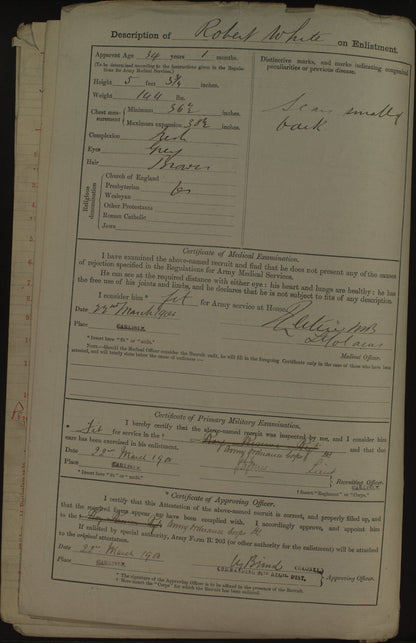 Description of Robert White on Enlistment.
Apparent Age 34 years 1 months.
(To be determined according to the instructions given in the Regulations for Army Medical Services.)
Height 5 feet 3¾ inches.
Weight 144 lbs.
Chest measurement { Minimum 36½ inches.
Maximum expansion 38½ inches.
Complexion Fresh
Eyes Grey
Hair Brown
Religious denomination
Church of England
Presbyterian
Wesleyan
Other Protestants
Roman Catholic
Jews
Distinctive marks, and marks indicating congenital peculiarities or previous disease.
Scar small of
back
Certificate of Medical Examination.
I have examined the above-named recruit and find that he does not present any of the causes
of rejection specified in the Regulations for Army Medical Services.
He can see at the required distance with either eye: his heart and lungs are healthy: he has
the free use of his joints and limbs, and he declares that he is not subject to fits of any description.
I consider him * fit for Army service at Home.
Date 22nd March
Place CARLISLE.
Medical Officer.
* Insert here "fit" or "unfit."
NOTE.—Should the Medical Officer consider the Recruit unfit, he will fill in the foregoing Certificate only in the case of those who have been
attested, and will briefly state below the cause of unfitness:—
Certificate of Primary Military Examination.
I hereby certify that the above-named recruit was inspected by me, and I consider him
* Fit for service in the † Army Ordnance Corps and that due
care has been exercised in his enlistment.
Date 22nd March 190
Place CARLISLE. Lieut
Recruiting Officer.
CARLISLE.
* Insert here "fit" or "unfit." † Insert "Regiment" or "Corps."
* Certificate of Approving Officer.
I certify that this Attestation of the above-named recruit is correct, and properly filled up, and
that the required forms appear to have been complied with. I accordingly approve, and appoint him
to the † Army Ordnance Corps
If enlisted by special authority, Army Form B. 203 (or other authority for the enlistment) will be attached
to the original attestation.
Date March 190
Place CARLISLE.
COLONEL
DIST. Approving Officer.
* The signature of the Approving Officer is to be affixed in the presence of the Recruit.
† Here insert the "Corps" for which the Recruit has been enlisted.